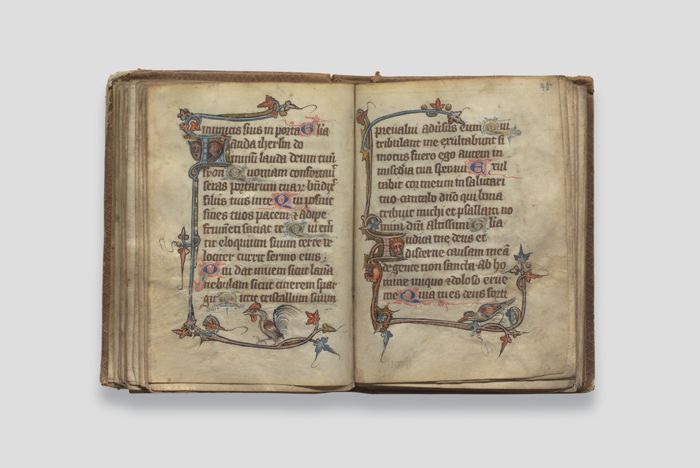 inimicis suis in porta Glia
Lauda iherlm do
minum lauda deum tuū
syon Quoniam confortauit
seras portarum tuar bn̄dix̄
filiis tuis in te Qui posuit
fines tuos pacem & adipe
frumēti saciat te Qui em̄
tit eloquium suum terre ue
lociter currit sermo eius
Qui dat niuem sicut lanā
nebulam sicut cinerem spar
git Mittit cristallum suum
preualui aduˢsus eum Qui
tribulant me exultabunt si
motus fuero ego autem in
mīscdia tua speraui Exul
tabit cor meum in salutari
tuo cantabo dn̄o qui bona
tribuit michi et psallam no
mini dn̄i altissimi Glia
Iudica me deus et
discerne causam meā
de gente non sancta ab ho
mine iniquo & doloso erue
me Quia tu es deus forti